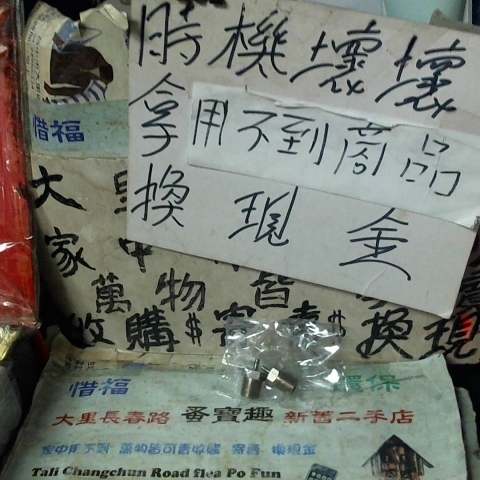 時機壞壞
拿用不到商品
換現金
惜福
大里
家中
萬物皆
收購$寄賣$換現
惜福 環保
大里長春路 蚤寶趣 新舊二手店
家中用不到 萬物皆可賣收購 寄售 換現金
Tali Changchun Road flea Po Fun